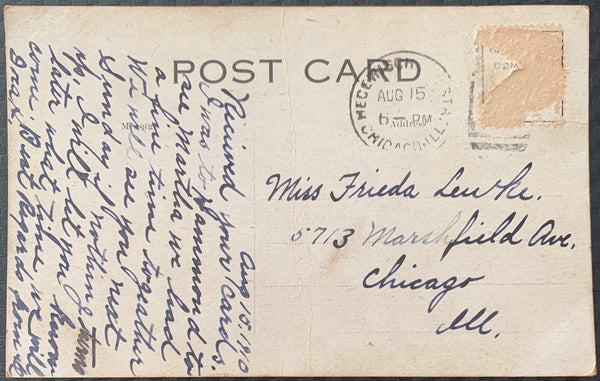 POST CARD
HEGEWISCH STA.
AUG 15
6 - PM
CHICAGO, ILL.
DOM
Address
Miss Frieda Lewke.
5713 Marshfield Ave.
Chicago
Ill.
Aug 15, 1910
Recived your cards.
I was to Hammond to
see Martha we had
a fine time together
We will see you next
Sunday if nothing turns
up, I will let you know
later what time we will
come. Best regards from us